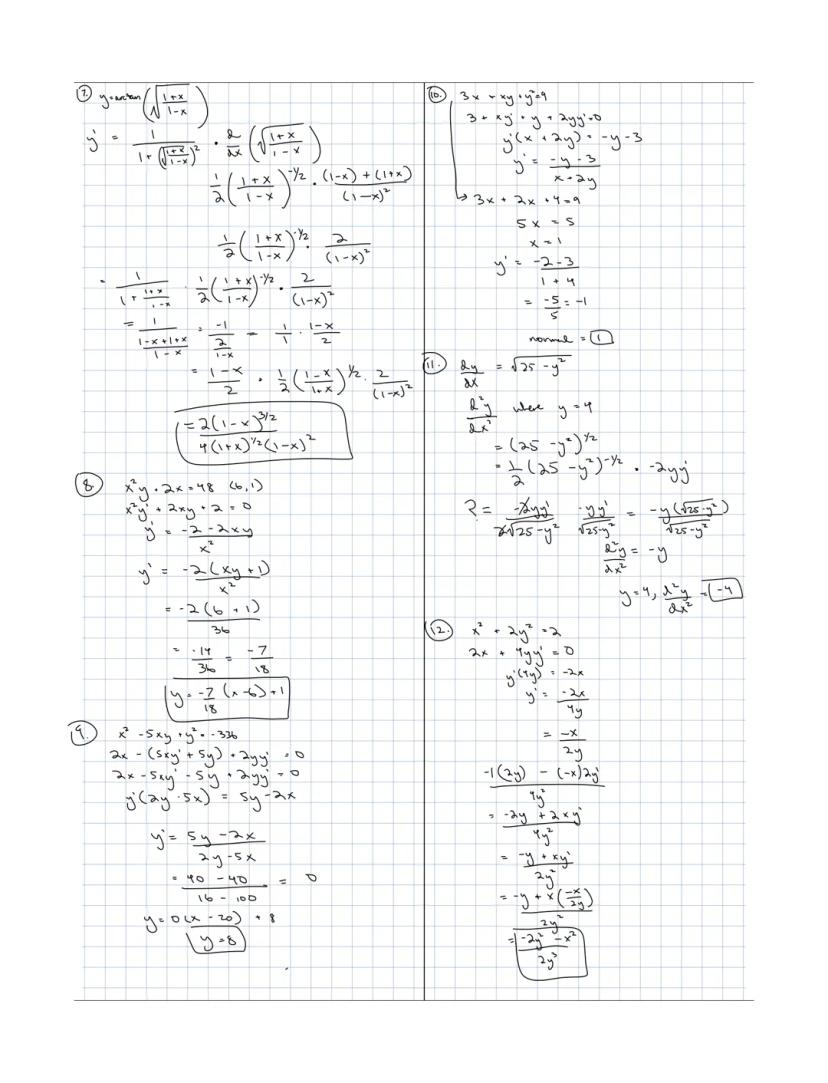 7. y=arctan(√((1+x)/(1-x)))
y' = 1/(1+(√((1+x)/(1-x)))²) · d/dx(√((1+x)/(1-x)))
1/2((1+x)/(1-x))^(-1/2) · ((1-x)+(1+x))/(1-x)²
1/2((1+x)/(1-x))^(-1/2) · 2/(1-x)²
= 1/(1+(1+x)/(1-x)) · 1/2((1+x)/(1-x))^(-1/2) · 2/(1-x)²
= 1/((1-x+1+x)/(1-x)) = -1/(2/(1-x)) = 1/1 · (1-x)/2
= (1-x)/2 · 1/2((1-x)/(1+x))^(1/2) · 2/(1-x)²
= 2(1-x)^(3/2)/(4(1+x)^(1/2)(1-x)²)
8. x²y + 2x = 48 (6,1)
x²y' + 2xy + 2 = 0
y' = (-2-2xy)/x²
y' = -2(xy+1)/x²
= -2(6+1)/36
= -14/36 = -7/18
y = -7/18(x-6)+1
9. x² -5xy +y² = -336
2x - (5xy' + 5y) + 2yy' = 0
2x - 5xy' - 5y + 2yy' = 0
y'(2y-5x) = 5y-2x
y' = (5y-2x)/(2y-5x)
= (40-40)/(16-100) = 0
y = 0(x-20) + 8
y=8
10. 3x + xy + y²=9
3 + xy' + y + 2yy'=0
y'(x + 2y) = -y -3
y' = (-y-3)/(x+2y)
3x + 2x + 4=9
5x = 5
x = 1
y' = (-2-3)/(1+4)
= -5/5 = -1
normal = 1
11. dy/dx = √(25-y²)
d²y/dx² where y=4
= (25-y²)^(1/2)
= 1/2(25-y²)^(-1/2) · -2yy'
? = -2yy'/(2√(25-y²)) -yy'/√(25-y²) = -y(√(25-y²))/√(25-y²)
d²y/dx² = -y
y=4, d²y/dx² = -4
12. x² + 2y² = 2
2x + 4yy' = 0
y'(4y) = -2x
y' = -2x/4y
= -x/2y
(-1(2y) - (-x)2y')/4y²
= (-2y + 2xy')/4y²
= (-y + xy')/2y²
= (-y + x(-x/2y))/2y²
= (-2y² - x²)/2y³